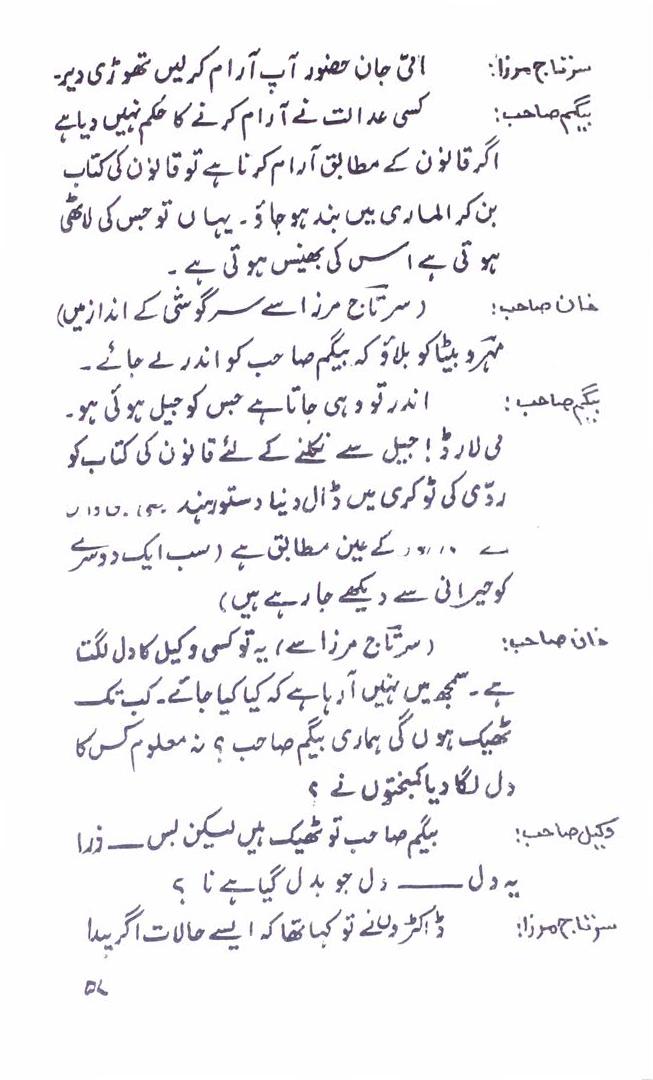 سرتاج مرزا: امّی جان حضور آپ آرام کرلیں تھوڑی دیر۔
بیگم صاحب: کسی عدالت نے آرام کرنے کا حکم نہیں دیا ہے
اگر قانون کے مطابق آرام کرنا ہے تو قانون کی کتاب
بن کر الماری میں بند ہو جاؤ۔ یہاں تو جس کی لاٹھی
ہوتی ہے اس کی بھینس ہوتی ہے۔
خان صاحب: (سرتاج مرزا سے سرگوشی کے انداز میں)
مہرو بیٹا کو بلاؤ کہ بیگم صاحب کو اندر لے جائے۔
بیگم صاحب: اندر تو وہی جاتا ہے جس کو جیل ہوئی ہو۔
می لارڈ! جیل سے نکلنے کے لئے قانون کی کتاب کو
ردّی کی ٹوکری میں ڈال دینا دستور ہند
کے عین مطابق ہے (سب ایک دوسرے
کو حیرانی سے دیکھے جا رہے ہیں)
خان صاحب: (سرتاج مرزا سے) یہ تو کسی وکیل کا دل لگتا
ہے۔ سمجھ میں نہیں آرہا ہے کہ کیا کیا جائے۔ کب تک
ٹھیک ہوں گی ہماری بیگم صاحب؟ نہ معلوم کس کا
دل لگا دیا کمبختوں نے؟
وکیل صاحب: بیگم صاحب تو ٹھیک ہیں لیکن بس ــــ ذرا
یہ دل ــــــ دل جو بدل گیا ہے نا؟
سرتاج مرزا: ڈاکٹروں نے تو کہا تھا کہ ایسے حالات اگر پیدا